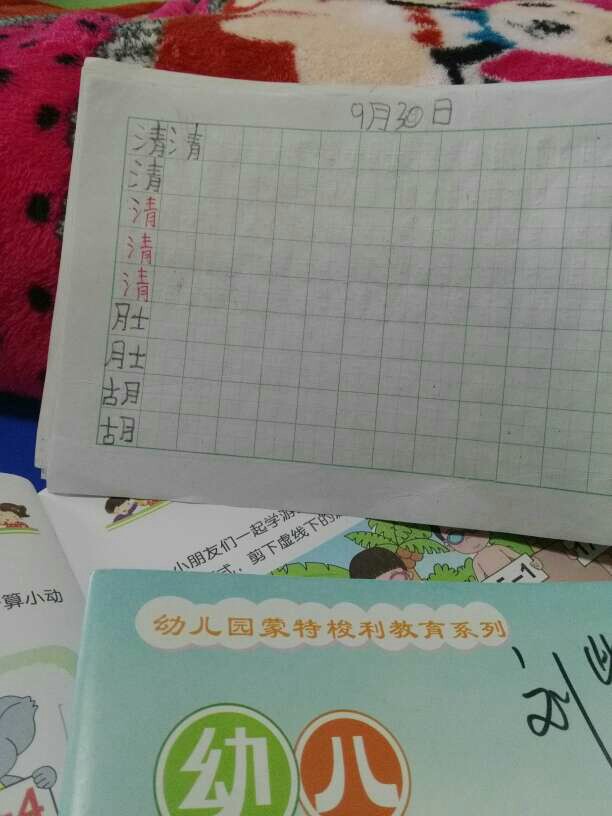 9月30日
清清
清
清
清
清
肚
肚
胡
胡
小朋友们一起学游
式，剪下虚线下的
算小动
5-1
幼儿园蒙特梭利教育系列
刘
幼儿
-4